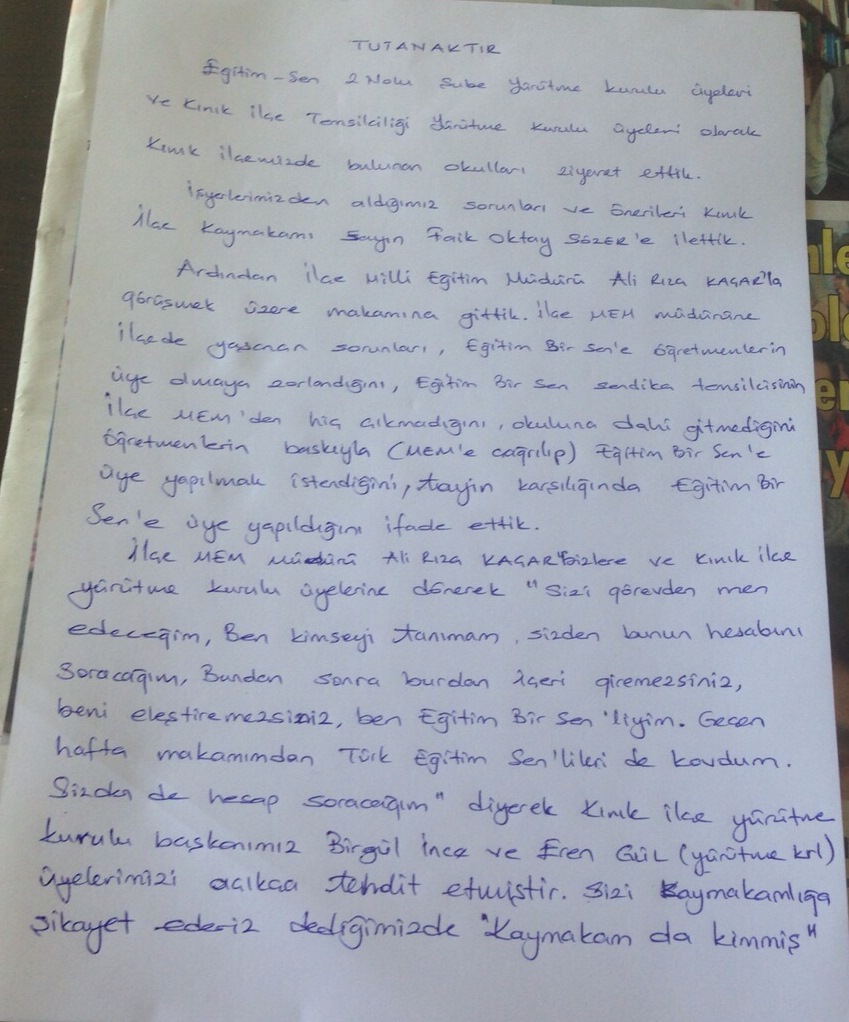 TUTANAKTIR
Eğitim-Sen 2 Nolu Şube Yürütme kurulu üyeleri
ve Kınık ilçe Temsilciliği Yürütme kurulu üyeleri olarak
Kınık ilçemizde bulunan okulları ziyaret ettik.
İşyerlerimizden aldığımız sorunları ve önerileri Kınık
İlçe Kaymakamı Sayın Faik Oktay SÖZER'e ilettik.
Ardından ilçe Milli Eğitim Müdürü Ali Rıza KAÇAR'la
görüşmek üzere makamına gittik. ilçe MEM müdürüne
ilçede yaşanan sorunları, Eğitim Bir Sen'e öğretmenlerin
üye olmaya zorlandığını, Eğitim Bir Sen sendika temsilcisinin
ilçe MEM'den hiç çıkmadığını, okuluna dahi gitmediğini
öğretmenlerin baskıyla (MEM'e çağrılıp) Eğitim Bir Sen'e
üye yapılmak istendiğini, tayin karşılığında Eğitim Bir
Sen'e üye yapıldığını ifade ettik.
İlçe MEM Müdürü Ali Rıza KAÇAR bizlere ve Kınık ilçe
yürütme kurulu üyelerine dönerek "Sizi görevden men
edeceğim, Ben kimseyi tanımam, sizden bunun hesabını
Soracağım, Bundan sonra burdan içeri giremezsiniz,
beni eleştiremezsiniz, ben Eğitim Bir Sen'liyim. Geçen
hafta makamımdan Türk Eğitim Sen'lileri de kovdum.
Sizden de hesap soracağım" diyerek Kınık ilçe yürütme
kurulu başkanımız Birgül İnce ve Eren Gül (yürütme krl)
üyelerimizi açıkça tehdit etmiştir. Sizi Kaymakamlığa
şikayet ederiz dediğimizde "Kaymakam da kimmiş"